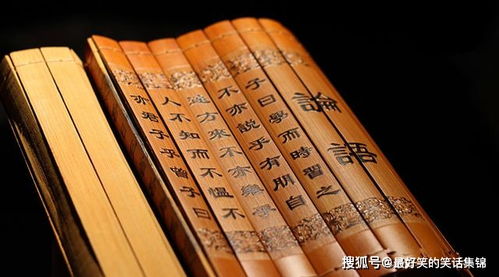 論語
子曰學而時習之
不亦說乎有朋自
遠方來不亦樂乎
人不知而不慍不
亦君子乎曾子曰
搜狐号@最好笑的笑话集锦